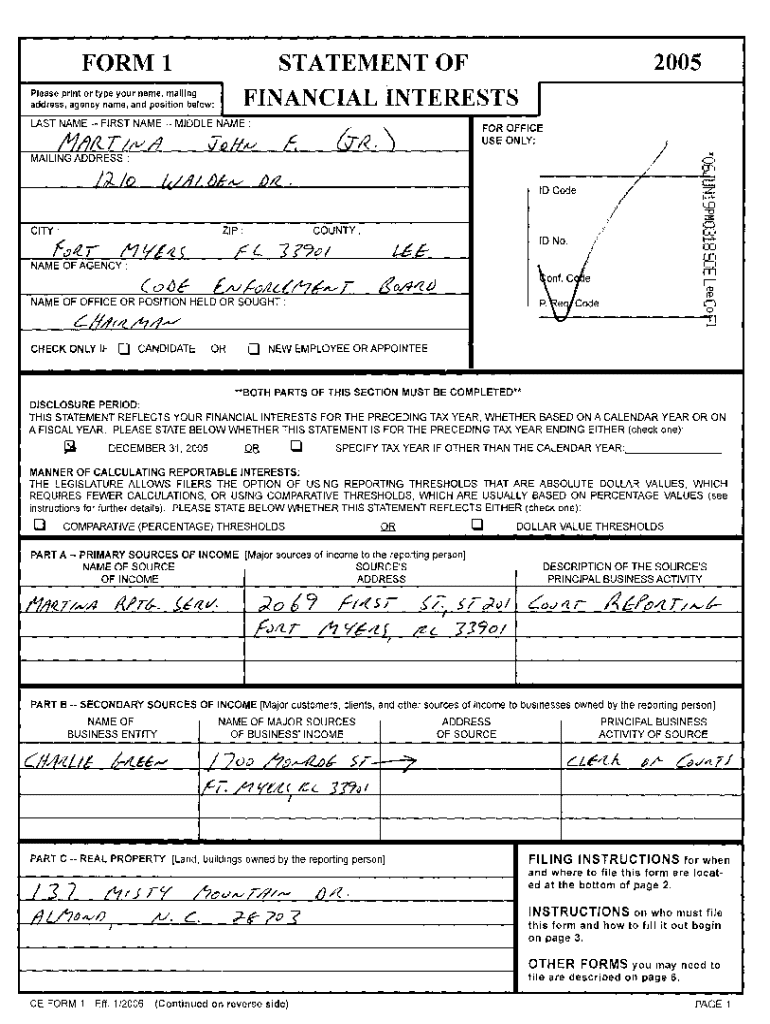 FORM 1 STATEMENT OF 2005
Please print or type your name, mailing
address, agency name, and position below:
FINANCIAL INTERESTS
LAST NAME -- FIRST NAME -- MIDDLE NAME :
MARTINA JOHN F. (JR.)
MAILING ADDRESS :
1210 WALDEN DR.
CITY : ZIP : COUNTY :
FORT MYERS FL 33901 LEE
NAME OF AGENCY :
CODE ENFORCEMENT BOARD
NAME OF OFFICE OR POSITION HELD OR SOUGHT :
CHAIRMAN
CHECK ONLY IF CANDIDATE OR NEW EMPLOYEE OR APPOINTEE
FOR OFFICE
USE ONLY:
ID Code
ID No.
Conf. Code
P. Req. Code
*06JUN19PM0318SOE LeeCoFl
**BOTH PARTS OF THIS SECTION MUST BE COMPLETED**
DISCLOSURE PERIOD:
THIS STATEMENT REFLECTS YOUR FINANCIAL INTERESTS FOR THE PRECEDING TAX YEAR, WHETHER BASED ON A CALENDAR YEAR OR ON
A FISCAL YEAR. PLEASE STATE BELOW WHETHER THIS STATEMENT IS FOR THE PRECEDING TAX YEAR ENDING EITHER (check one):
DECEMBER 31, 2005 OR SPECIFY TAX YEAR IF OTHER THAN THE CALENDAR YEAR:
MANNER OF CALCULATING REPORTABLE INTERESTS:
THE LEGISLATURE ALLOWS FILERS THE OPTION OF USING REPORTING THRESHOLDS THAT ARE ABSOLUTE DOLLAR VALUES, WHICH
REQUIRES FEWER CALCULATIONS, OR USING COMPARATIVE THRESHOLDS, WHICH ARE USUALLY BASED ON PERCENTAGE VALUES (see
instructions for further details). PLEASE STATE BELOW WHETHER THIS STATEMENT REFLECTS EITHER (check one):
COMPARATIVE (PERCENTAGE) THRESHOLDS OR DOLLAR VALUE THRESHOLDS
PART A -- PRIMARY SOURCES OF INCOME [Major sources of income to the reporting person]
NAME OF SOURCE SOURCE'S DESCRIPTION OF THE SOURCE'S
OF INCOME ADDRESS PRINCIPAL BUSINESS ACTIVITY
MARTINA RPTG. SERV. 2069 FIRST ST., ST 201 COURT REPORTING
FORT MYERS, FL 33901
PART B -- SECONDARY SOURCES OF INCOME [Major customers, clients, and other sources of income to businesses owned by the reporting person]
NAME OF NAME OF MAJOR SOURCES ADDRESS PRINCIPAL BUSINESS
BUSINESS ENTITY OF BUSINESS' INCOME OF SOURCE ACTIVITY OF SOURCE
CHARLIE GREEN 1700 MONROE ST → CLERK OF COURTS
FT. MYERS, FL 33901
PART C -- REAL PROPERTY [Land, buildings owned by the reporting person]
137 MISTY MOUNTAIN DR.
ALMOND, N.C. 28703
FILING INSTRUCTIONS for when
and where to file this form are locat-
ed at the bottom of page 2.
INSTRUCTIONS on who must file
this form and how to fill it out begin
on page 3.
OTHER FORMS you may need to
file are described on page 6.
CE FORM 1 Eff. 1/2006 (Continued on reverse side) PAGE 1